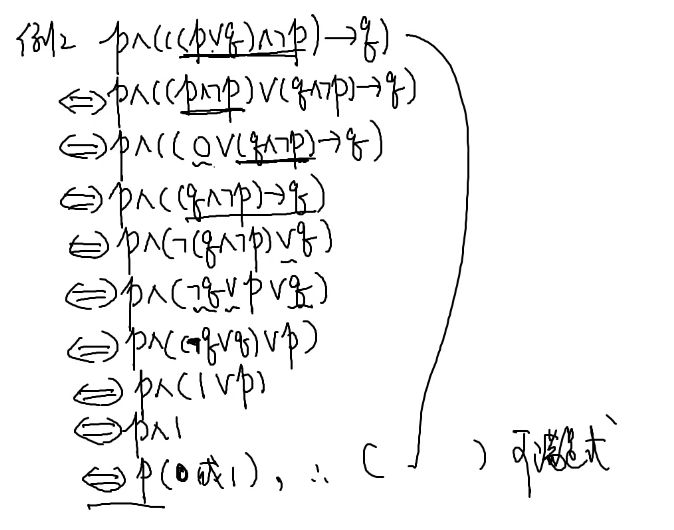 例2 p∧(((p∨q)∧¬p)→q)
⇔p∧((p∧¬p)∨(q∧¬p)→q)
⇔p∧((0∨(q∧¬p)→q)
⇔p∧((q∧¬p)→q)
⇔p∧(¬(q∧¬p)∨q)
⇔p∧(¬q∨p∨q)
⇔p∧((¬q∨q)∨p)
⇔p∧(1∨p)
⇔p∧1
⇔p(0或1), ∴ ( ) 可满足式